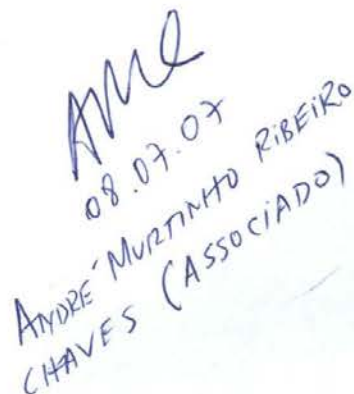 08.07.07
ANDRÉ MURTINHO RIBEIRO
CHAVES (ASSOCIADO)